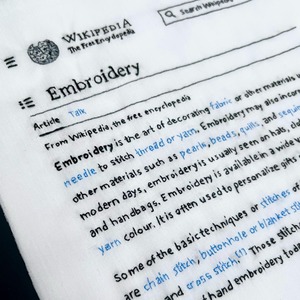 WIKIPEDIA
The Free Encyclopedia
Search Wikipedia
Embroidery
Article Talk
From Wikipedia, the free encyclopedia
Embroidery is the art of decorating fabric or other materials
needle to stitch thread or yarn. Embroidery may also
other materials such as pearls, beads, quills, and
modern days, embroidery is usually seen on hats,
and handbags. Embroidery is available in a wide
yarn colour. It is often used to personalize gifts
Some of the basic techniques or stitches
are chain stitch, buttonhole or blanket
and cross stitch.[1] Those stitches
hand embroidery